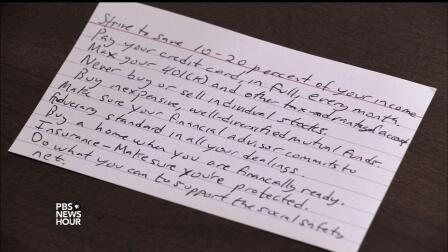 Strive to save 10-20 percent of your income
Pay your credit card in full every month
Max your 401(k) and other tax-advantaged accounts
Never buy or sell individual stocks.
Buy inexpensive, well-diversified mutual funds.
Make sure your financial advisor commits to
fiduciary standard in all your dealings.
Buy a home when you are financially ready.
Insurance - Make sure you're protected.
Do what you can to support the social safety
net.
PBS
NEWS
HOUR